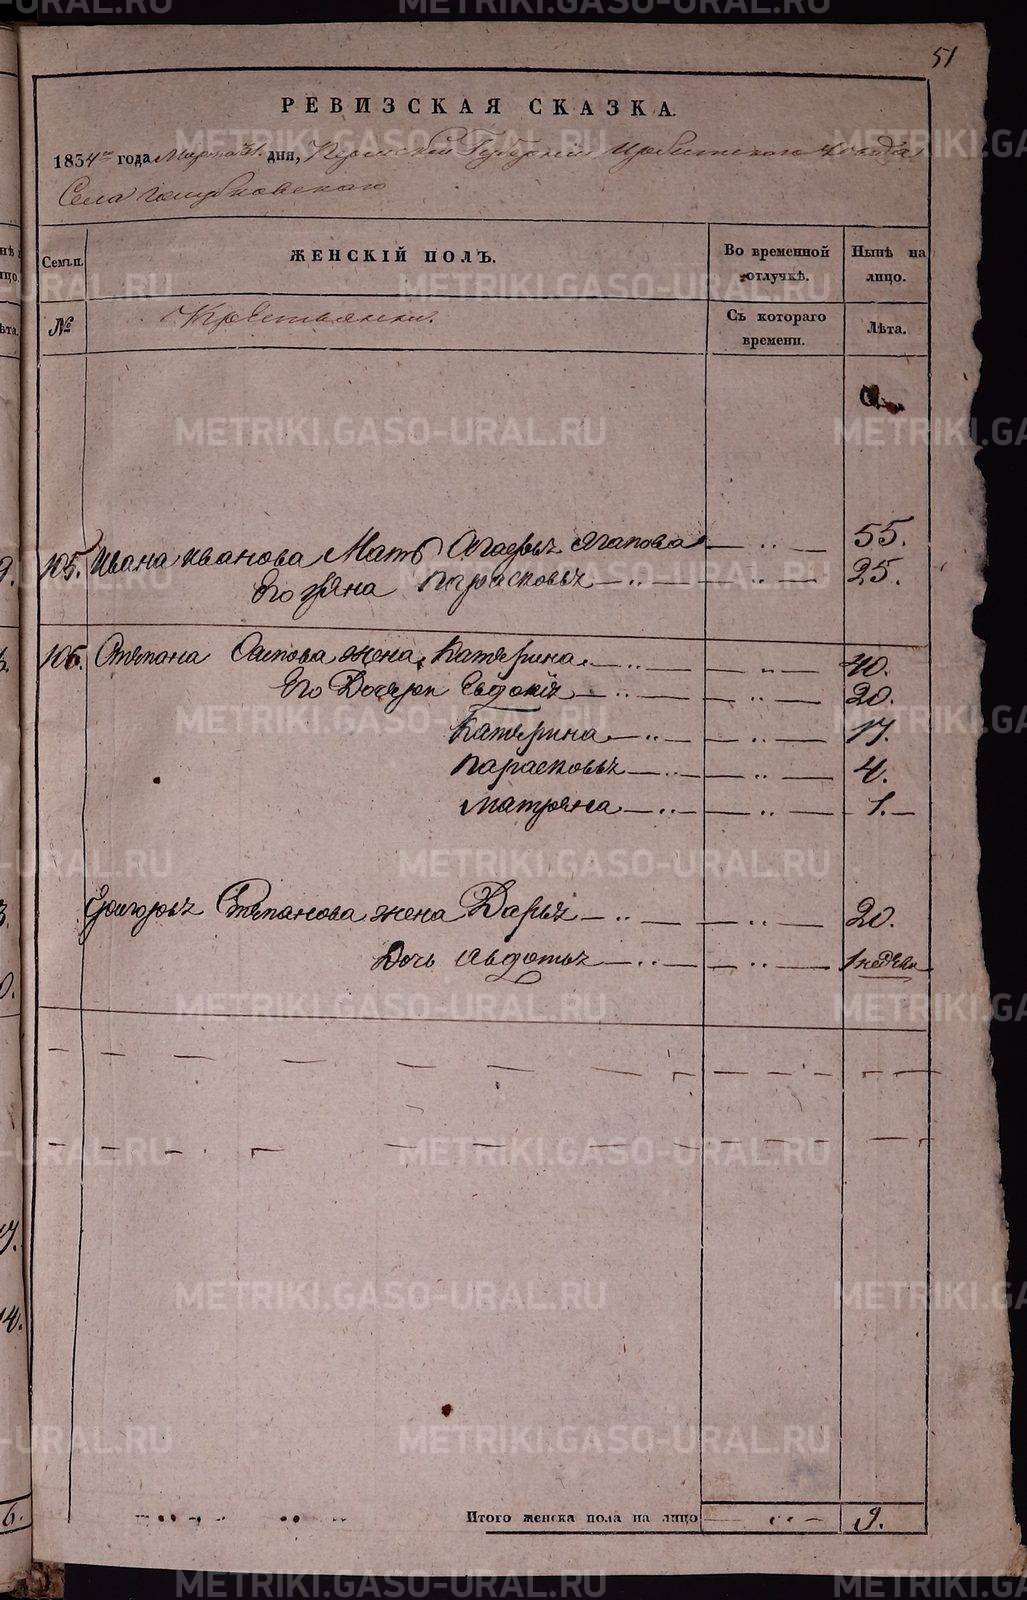 51
РЕВИЗСКАЯ СКАЗКА.
1854го года Марта 31. дня, Пермской Губернии Ирбитского Уезда
Села Голубковскаго
Семьи.
ЖЕНСКІЙ ПОЛЪ.
Во временной отлучкѣ.
Нынѣ на лицо.
№
Крестьянски.
Съ котораго времени.
Лѣта.
105. Ивана Иванова Мать Агафья Агапова — .. — 55.
Его жена Парасковья — .. — 25.
106. Степана Осипова жена Катерина — .. — 40.
Его Дочери Евдокія — .. — 20.
Катерина — .. — 17.
Парасковья — .. — 4.
Матрена — .. — 1.
Григорья Степанова жена Дарья — .. — 20.
Дочь Авдотья — .. — 1 недѣли
Итого женска пола на лицо .. — 9.
METRIKI.GASO-URAL.RU